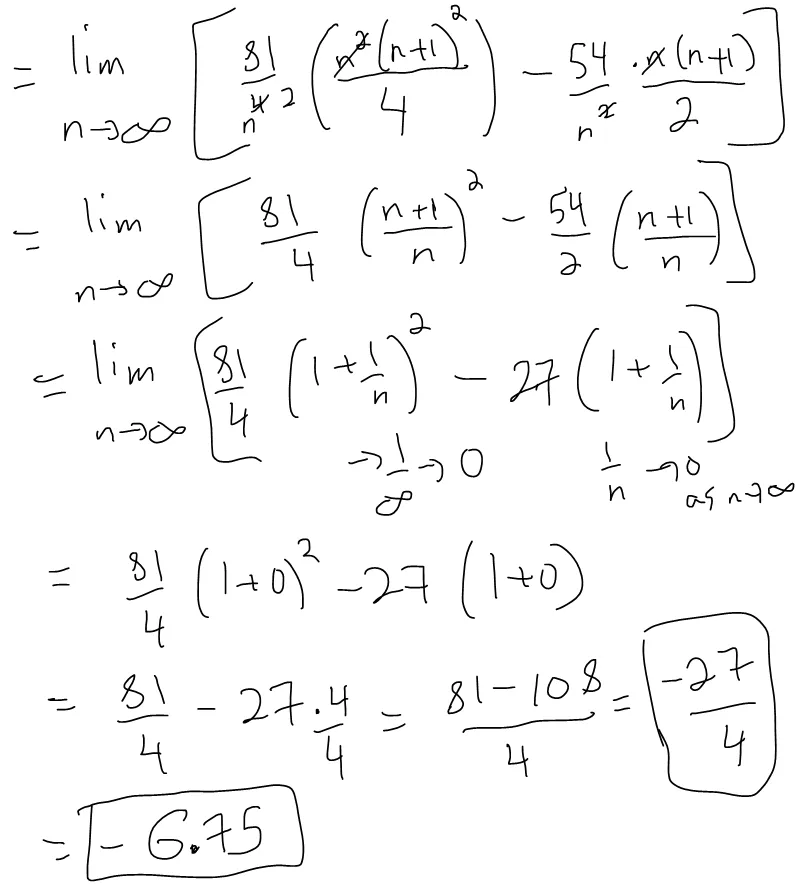 = lim n→∞ [ 81/n^4 2 ( n^2 (n+1)^2 / 4 ) − 54/n^2 · n(n+1)/2 ]
= lim n→∞ [ 81/4 ( (n+1)/n )^2 − 54/2 ( (n+1)/n ) ]
= lim n→∞ [ 81/4 ( 1 + 1/n )^2 − 27 ( 1 + 1/n ) ]
→ 1/∞ → 0 1/n → 0 as n→∞
= 81/4 (1+0)^2 − 27 (1+0)
= 81/4 − 27 · 4/4 = (81−108)/4 = −27/4
= −6.75